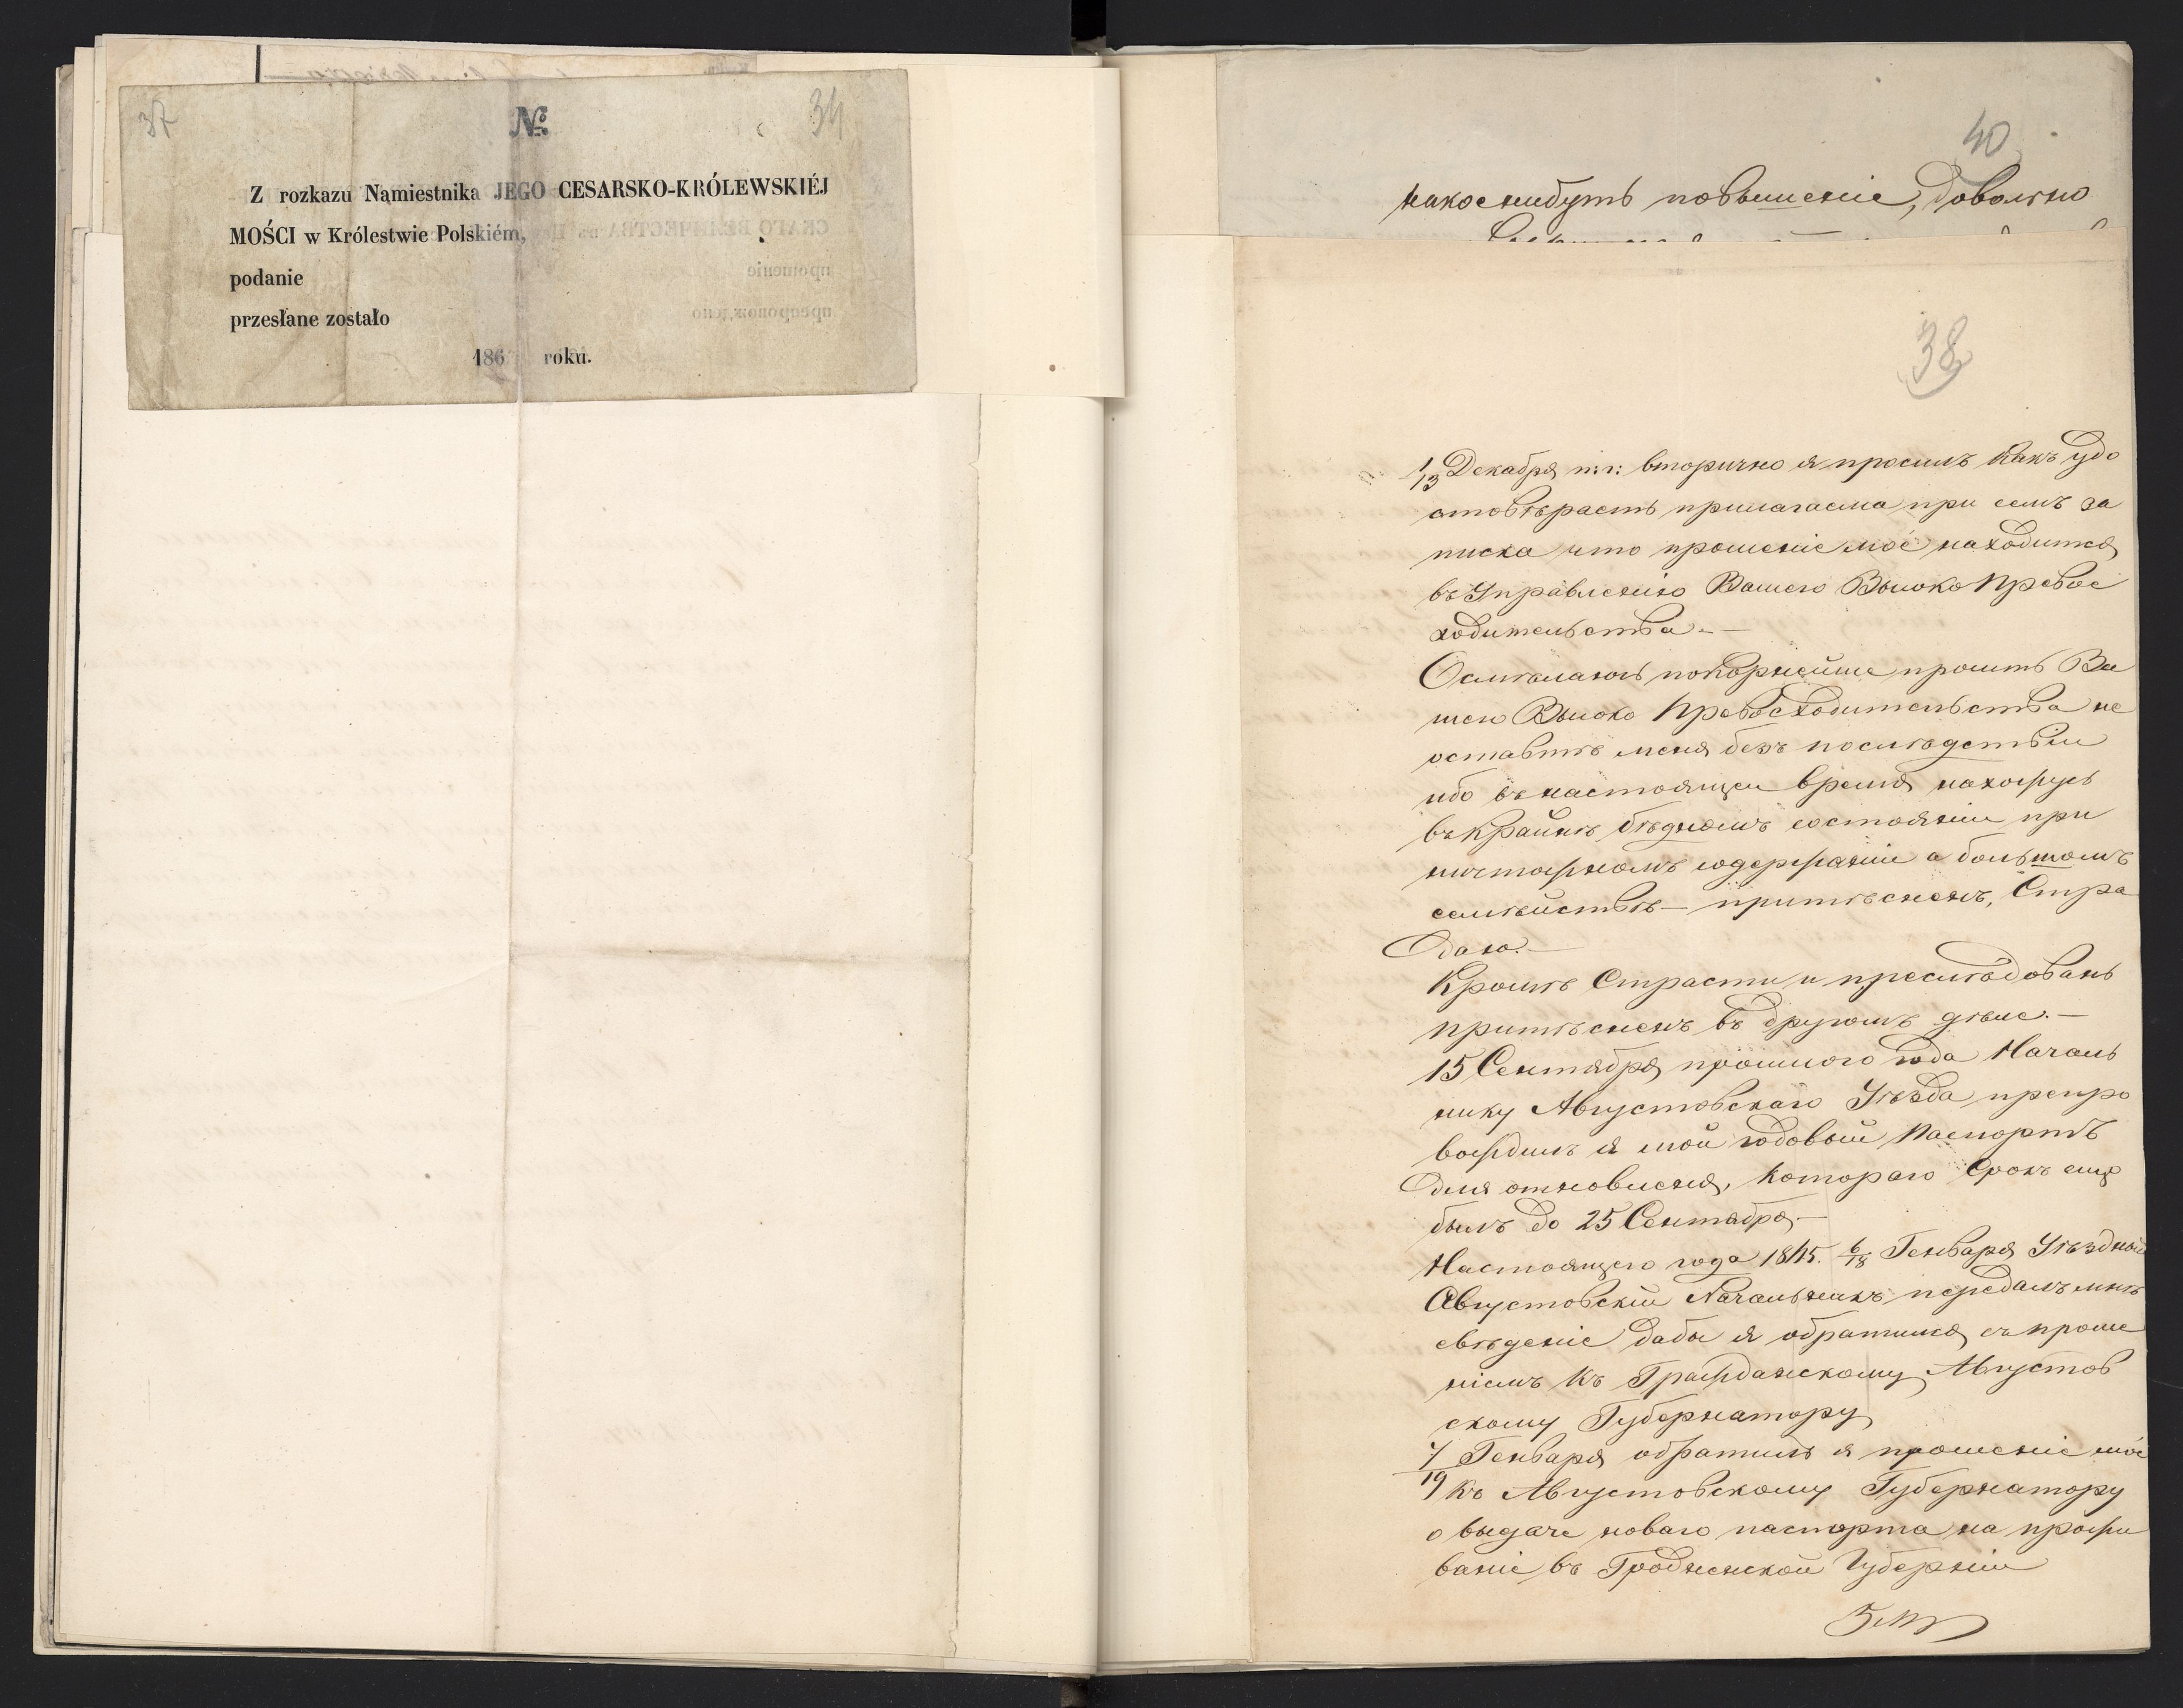 37
34
№
Z rozkazu Namiestnika JEGO CESARSKO-KRÓLEWSKIÉJ
MOŚCI w Królestwie Polskiém,
podanie
przesłane zostało
186 roku.
40
какое нибудь повышеніе, довольно
38
1/13 Декабря т: г: вторично я просилъ какъ удо
стовѣраетъ прилагаема при семъ за
писка что прошеніе моё находится
въ Управленію Вашего Высоко Превос
ходительства. —
Осмѣлаюсь покорнейше просить Ва
шего Высоко Превосходительства не
оставить меня безъ послѣдствіи
ибо въ настоящеи время нахожусь
въ крайнѣ бѣдномъ состояніи при
ничтожномъ содержаніи а большомъ
семѣйствѣ — притѣсненъ, Стра
даю. —
Кромѣ Страсти и преслѣдовань
притѣсненъ въ другомъ дѣле. —
15 Сентября прошлого года Началь
нику Августовскаго Уѣзда препро
вождилъ я мой годовой паспортъ
для отновленя, котораго Срокъ еще
былъ до 25 Сентября —
Настоящего года 1845. 6/18 Генваря Уѣздный
Августовскіи Начальникъ передалъ мнѣ
свѣденіе дабы я обратился съ проше
ніемъ къ Гражданскому Августов
скому Губернатору
7/19 Генваря обратилъ я прошеніе моё
къ Августовскому Губернатору
о выдаче новаго паспорта на прожи
ваніе въ Гродненской Губерніи